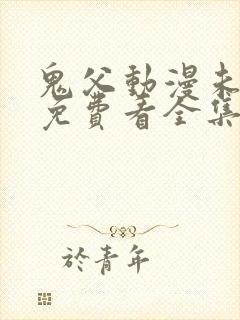 鬼父動漫未
免費看全集
於青年